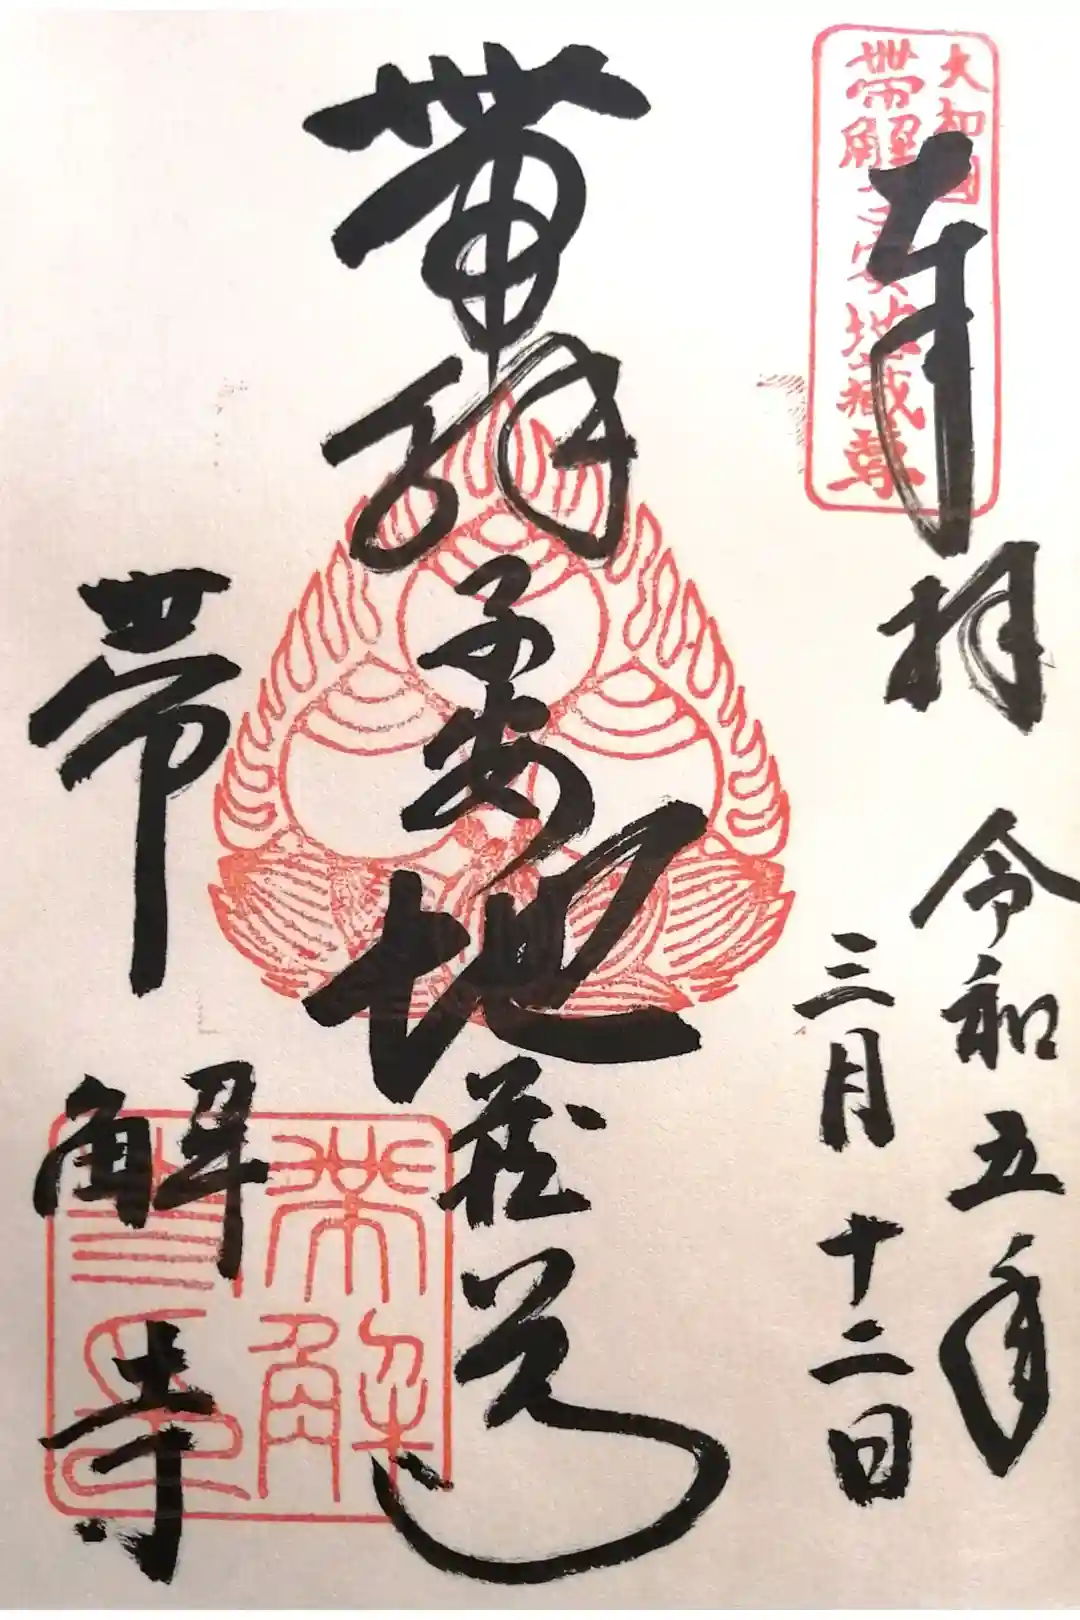 大和国
帯解子安地蔵尊
奉拝
令和五年
三月十二日
帯解子安地蔵尊
帯解寺
帯解寺印